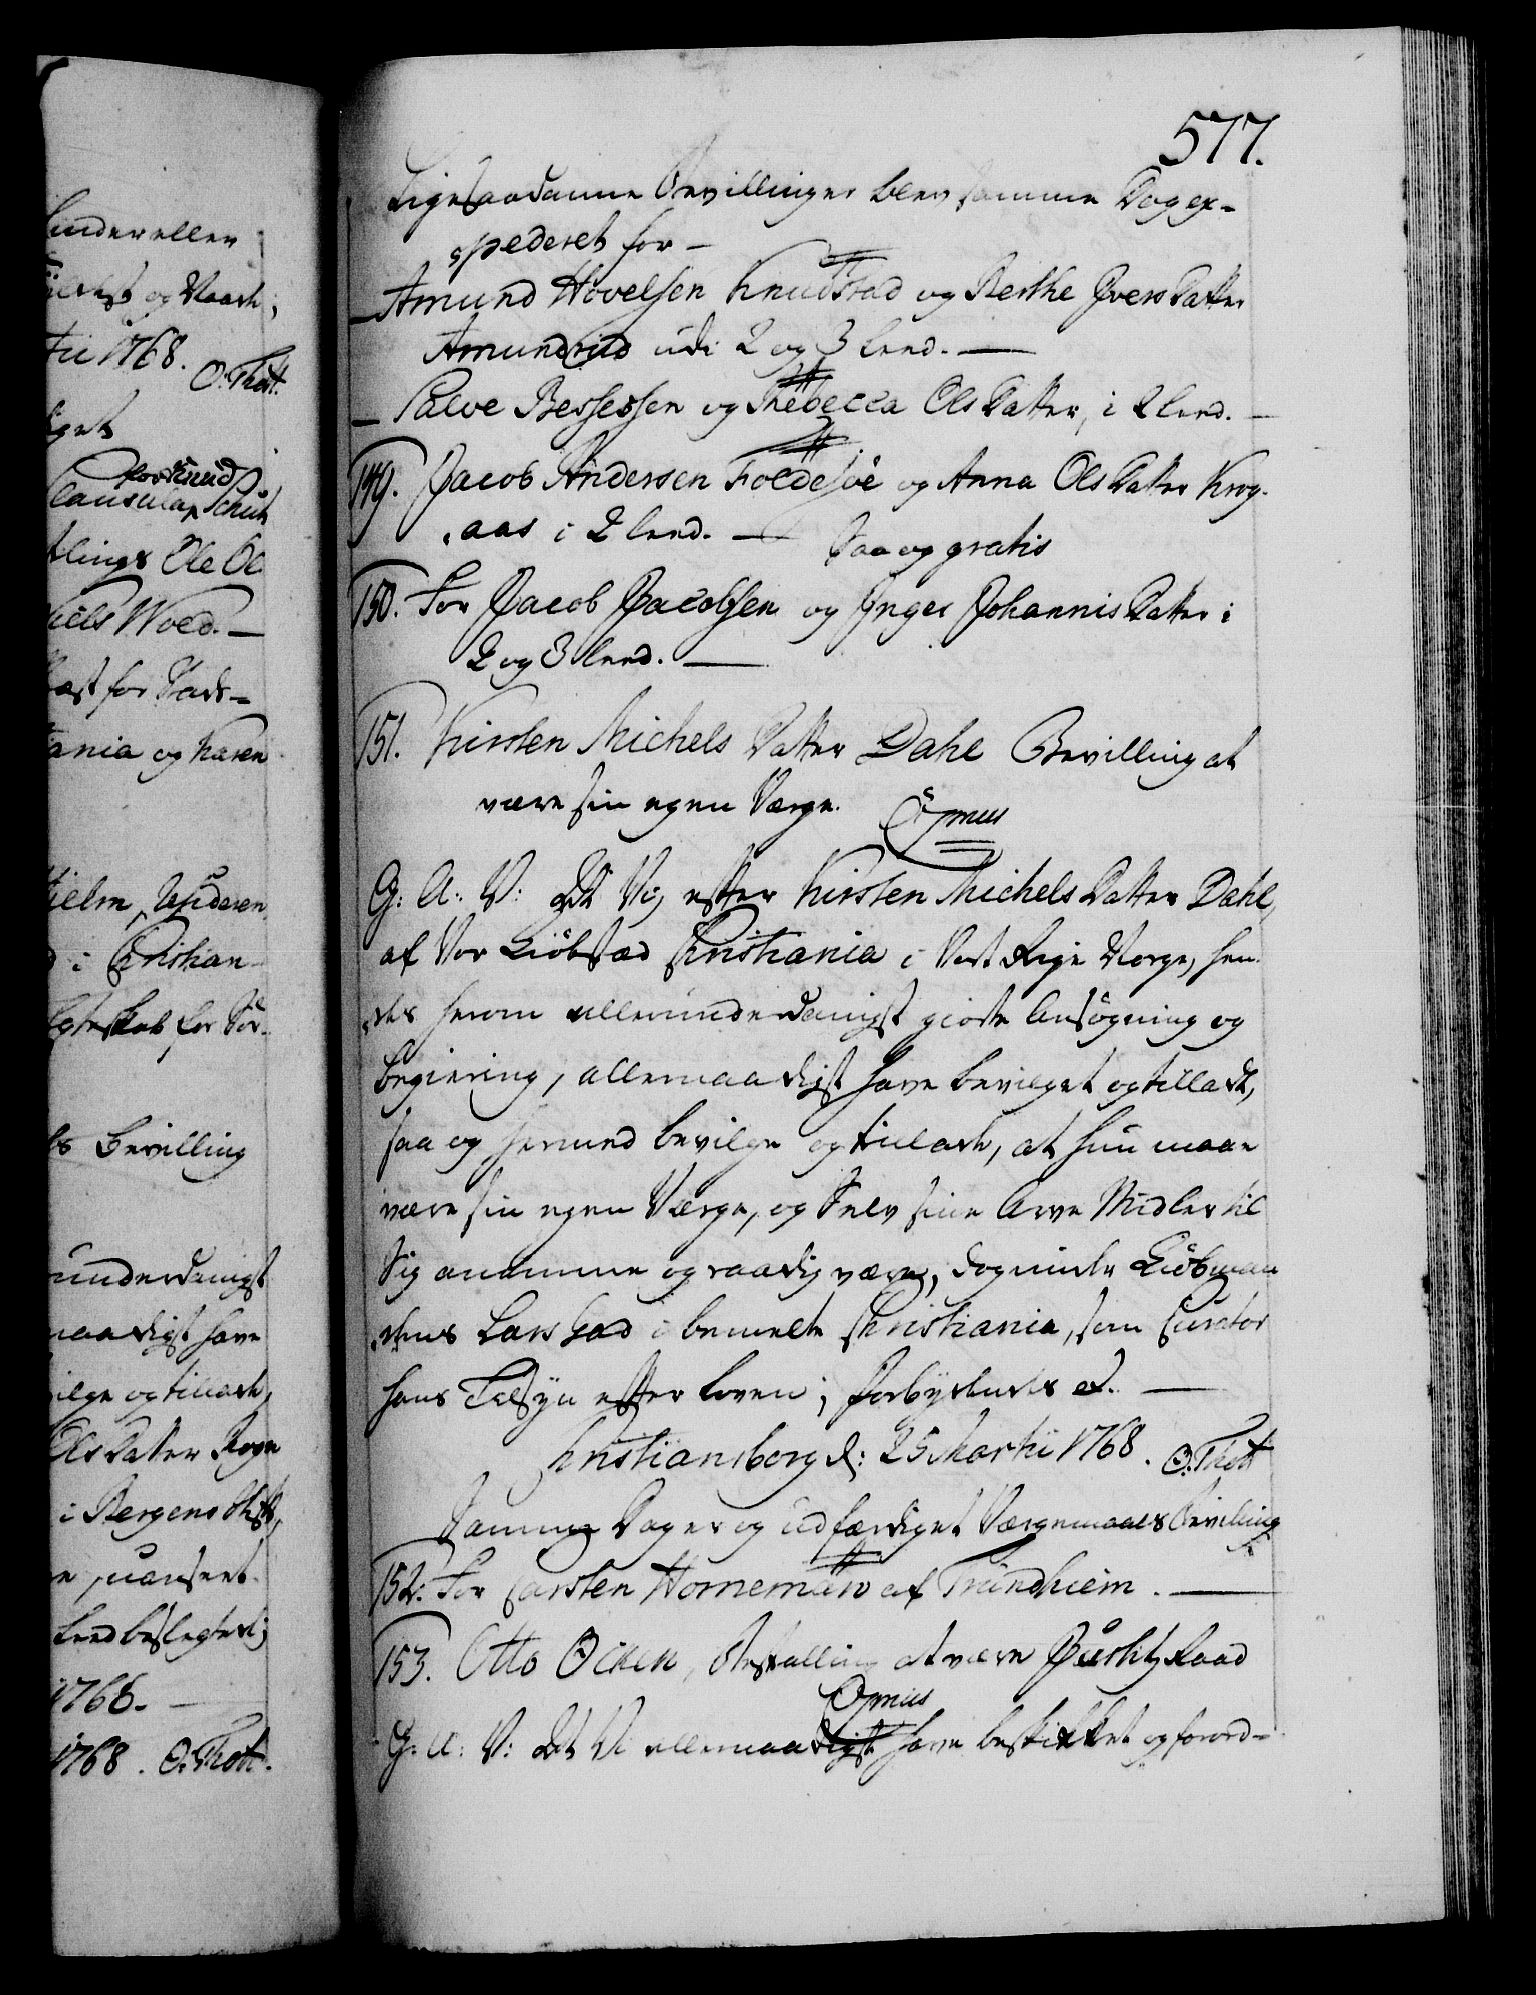 577.
Ligesaadanne Bevillinger blev samme Dag ex-
pederet for -
Amund Hovelsen Knudstad og Berthe Ivers Datter
Amundrud udi 2 og 3 Leed.
Salve Bessessen og Rebecca Ols Datter, i 2 Leed.
149. Jacob Andersen Foldesøe og Anna Ols Datter Krog-
aas i 2 Leed. Saa og gratis
150. For Jacob Jacobsen og Inger Johannis Datter i
2 og 3 Leed.
151. Kirsten Michels Datter Dahl Bevilling at
være sin egen Værge.
G: A: V: At Vi, efter Kirsten Michels Datter Dahl,
af Vor Kiøbstad Christiania i Vort Rige Norge, hen-
des herom allerunderdanigst giorte Ansøgning og
Begiering, allernaadigst have bevilget og tilladt,
saa og hermed bevilge og tillade, at hun maae
være sin egen Værge, og Selv sine Arve Midler til
Sig anamme og raadig være, dog under Kiøbman-
dens Lars Gad i bemelte Christiania, som Curator
hans Tilsyn efter Loven; Forbydendes &.
Christiansborg d: 25 Martii 1768. O. Thott
Samme Dag er og udfærdiget Værgemaals Bevilling
152. For Carsten Horneman af Trundhiem.
153. Otto Ocken, Bestalling at være Justitz Raad
G: A: V: At Vi allernaadigst have beskikket og forord-
under eller
og Naade,
tii 1768.
O. Thott.
iget
for Knud
Clausula, Schub
tlings Ole Ol
Niels Wold.
ania og Karen
i Christian-
gteskab for
bs Bevilling
underdanigst
naadigst have
ilge og tillade,
Ols Datter
i Bergens Stift,
Leed beslegtede;
1766.
1768. O. Thott.